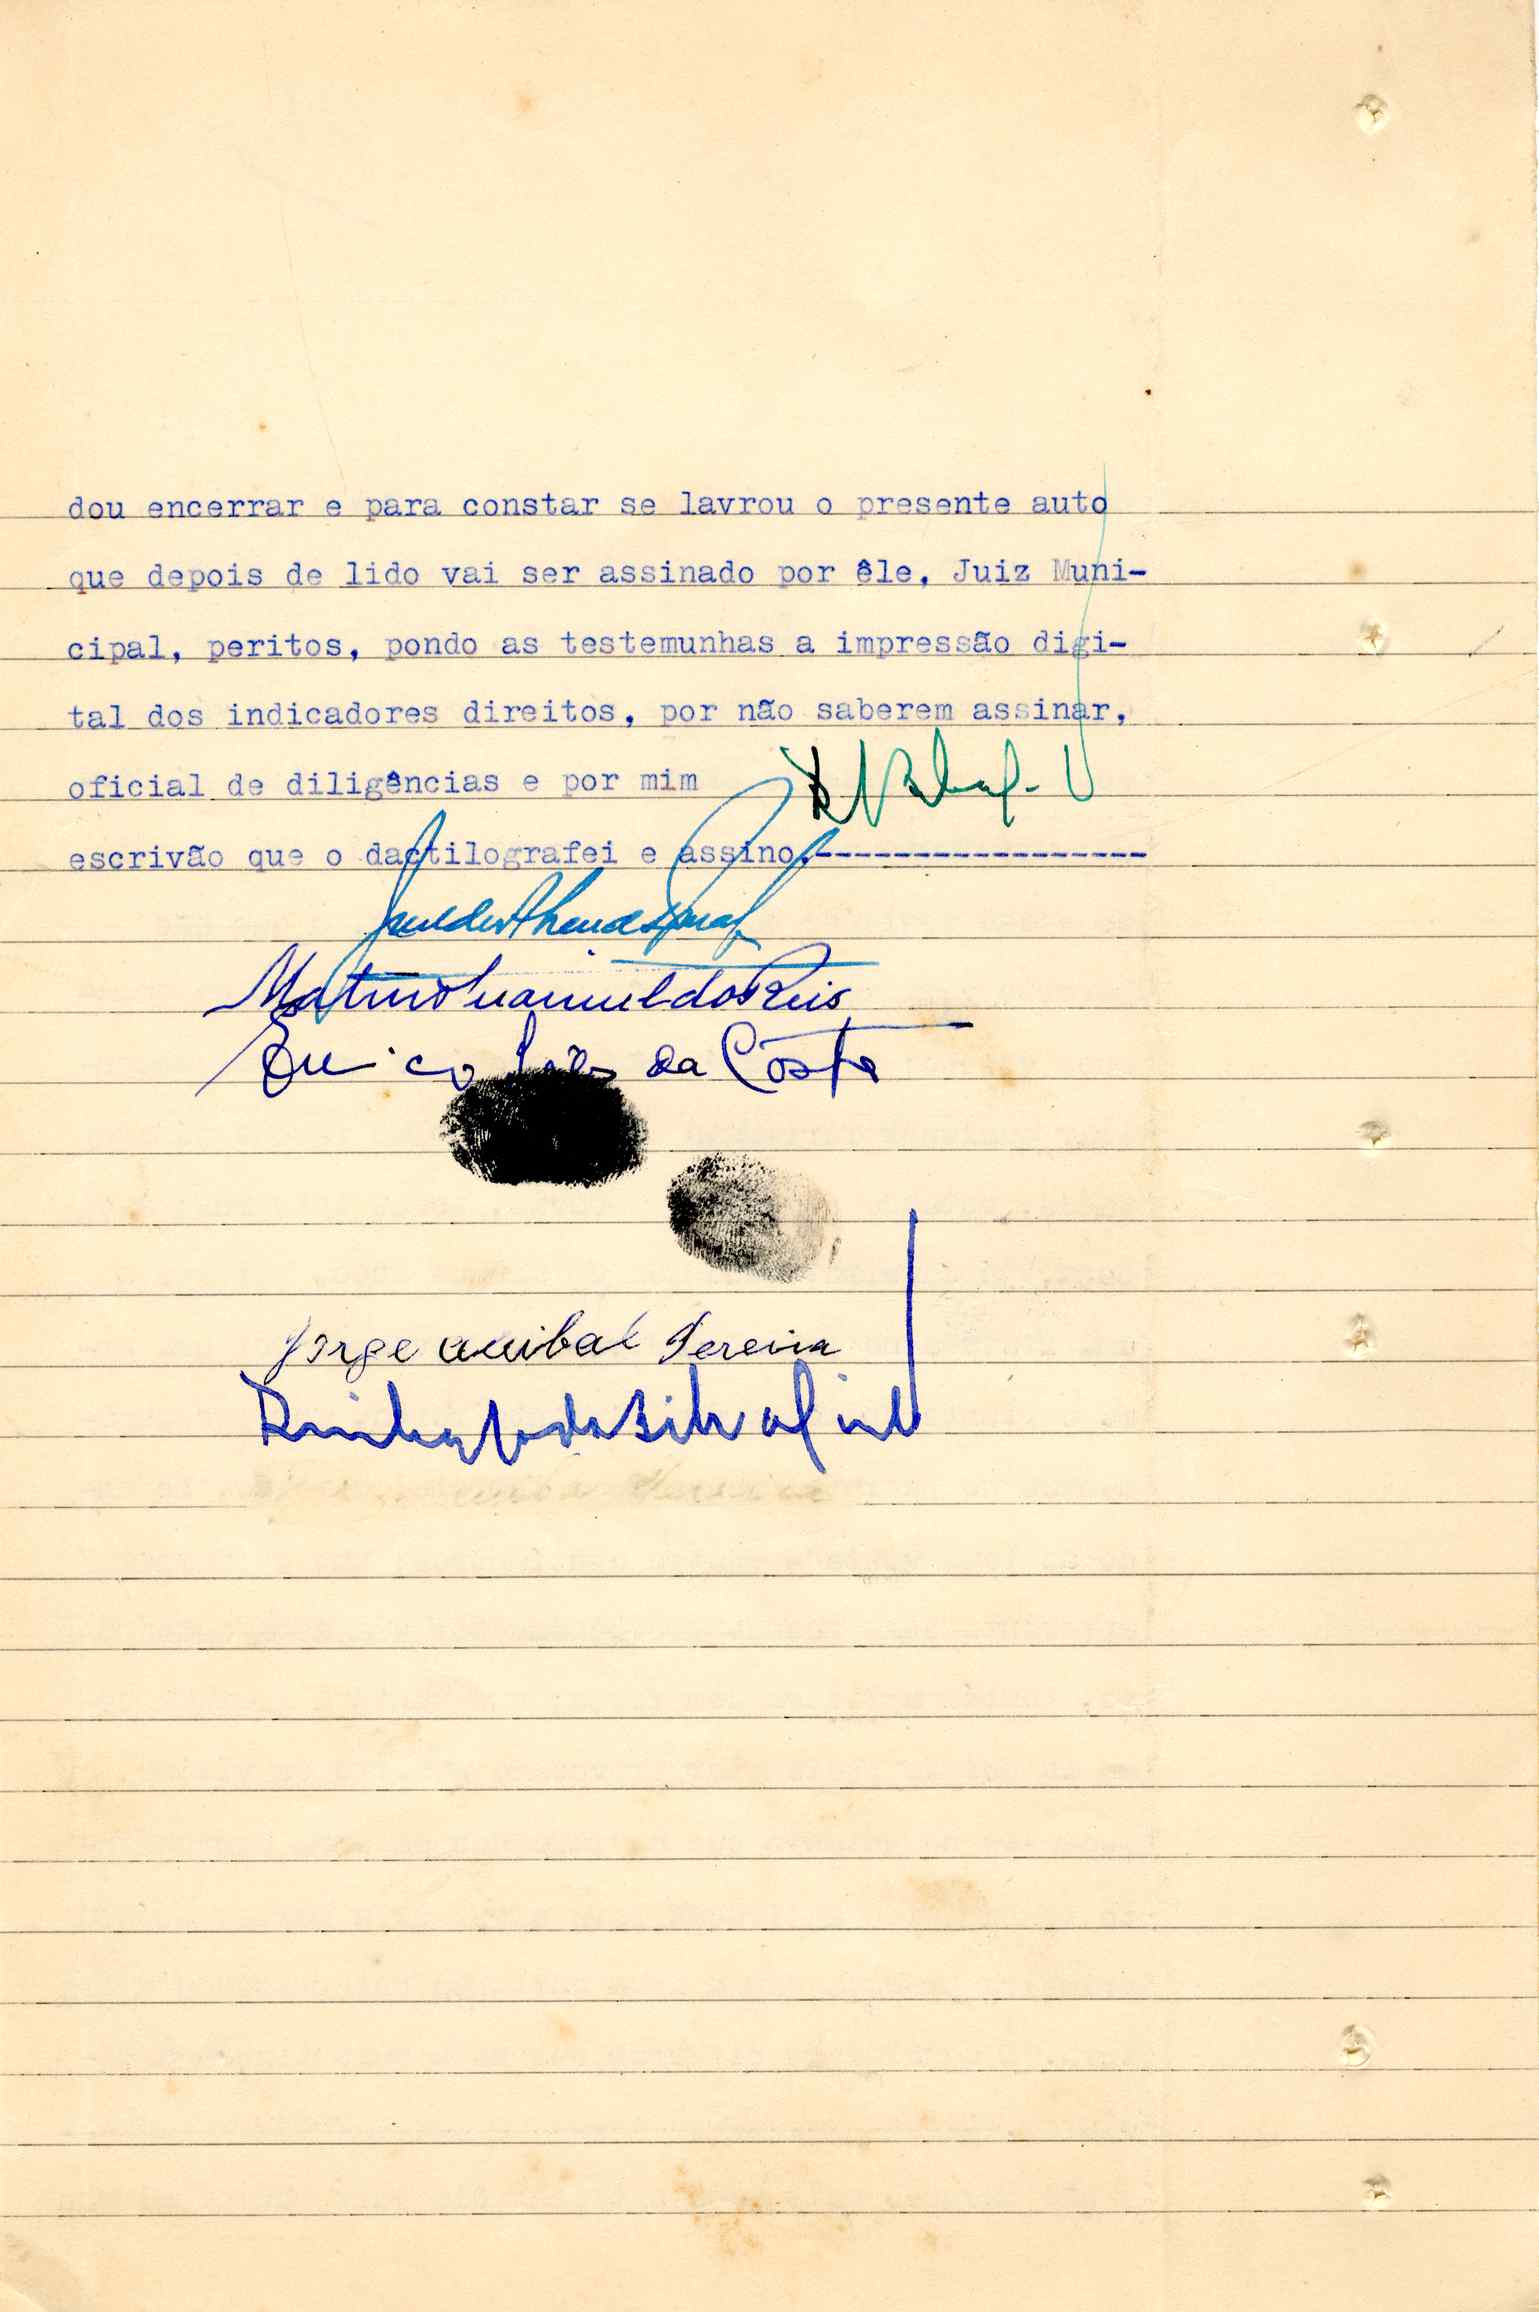 dou encerrar e para constar se lavrou o presente auto
que depois de lido vai ser assinado por êle, Juiz Muni-
cipal, peritos, pondo as testemunhas a impressão digi-
tal dos indicadores direitos, por não saberem assinar,
oficial de diligências e por mim
escrivão que o dactilografei e assino.-----------------
Manuel dos Reis
da Costa
Jorge Anibal Pereira